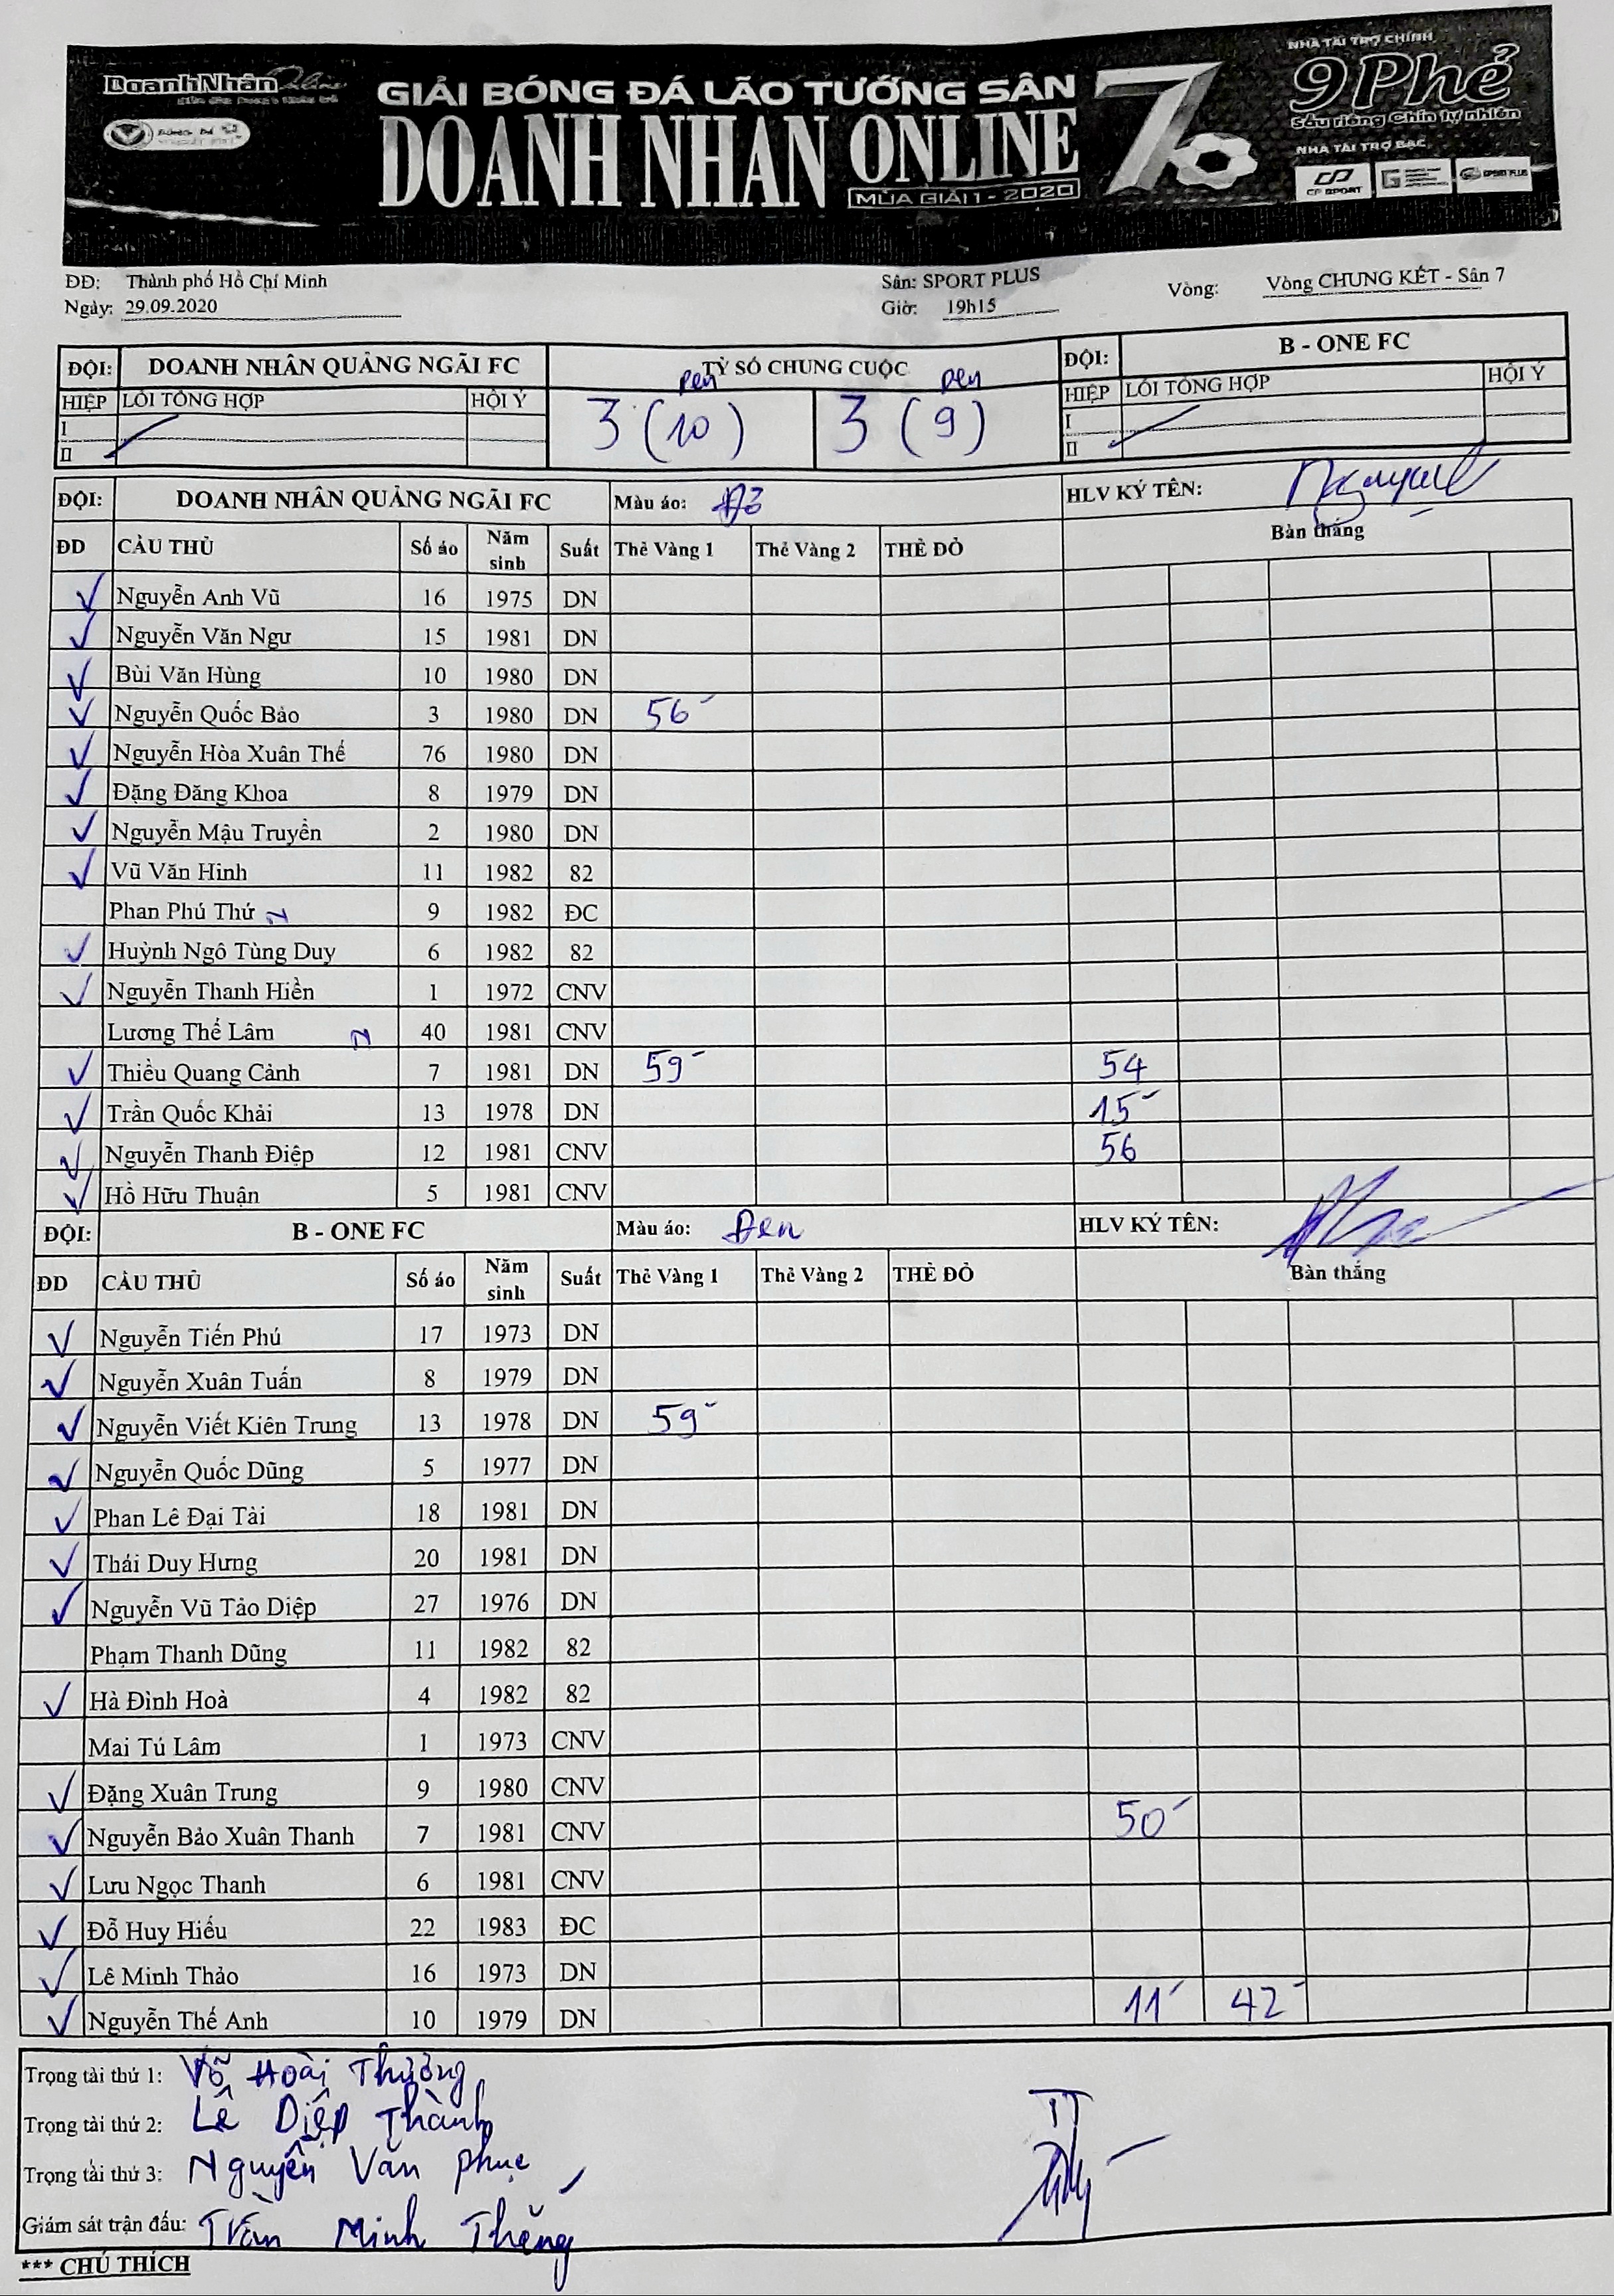 DoanhNhân Online
GIẢI BÓNG ĐÁ LÃO TƯỚNG SÂN 7
DOANH NHÂN ONLINE
MÙA GIẢI 1 - 2020
70
NHÀ TÀI TRỢ CHÍNH
9 Phẻ
Sầu riêng Chín tự nhiên
NHÀ TÀI TRỢ BẠC
CP SPORT
SPORT PLUS
ĐĐ: Thành phố Hồ Chí Minh Sân: SPORT PLUS Vòng: Vòng CHUNG KẾT - Sân 7
Ngày: 29.09.2020 Giờ: 19h15
ĐỘI: DOANH NHÂN QUẢNG NGÃI FC TỶ SỐ CHUNG CUỘC ĐỘI: B - ONE FC
pen pen
HIỆP LỖI TỔNG HỢP HỘI Ý 3 (10) 3 (9) HIỆP LỖI TỔNG HỢP HỘI Ý
I I
II II
ĐỘI: DOANH NHÂN QUẢNG NGÃI FC Màu áo: Đỏ HLV KÝ TÊN:
ĐD CẦU THỦ Số áo Năm sinh Suất Thẻ Vàng 1 Thẻ Vàng 2 THẺ ĐỎ Bàn thắng
✓ Nguyễn Anh Vũ 16 1975 DN
✓ Nguyễn Văn Ngư 15 1981 DN
✓ Bùi Văn Hùng 10 1980 DN
✓ Nguyễn Quốc Bảo 3 1980 DN 56'
✓ Nguyễn Hòa Xuân Thế 76 1980 DN
✓ Đặng Đăng Khoa 8 1979 DN
✓ Nguyễn Mậu Truyền 2 1980 DN
✓ Vũ Văn Hinh 11 1982 82
Phan Phú Thứ N 9 1982 ĐC
✓ Huỳnh Ngô Tùng Duy 6 1982 82
✓ Nguyễn Thanh Hiền 1 1972 CNV
Lương Thế Lâm N 40 1981 CNV
✓ Thiều Quang Cảnh 7 1981 DN 59' 54
✓ Trần Quốc Khải 13 1978 DN 15'
✓ Nguyễn Thanh Điệp 12 1981 CNV 56
✓ Hồ Hữu Thuận 5 1981 CNV
ĐỘI: B - ONE FC Màu áo: Đen HLV KÝ TÊN:
ĐD CẦU THỦ Số áo Năm sinh Suất Thẻ Vàng 1 Thẻ Vàng 2 THẺ ĐỎ Bàn thắng
✓ Nguyễn Tiến Phú 17 1973 DN
✓ Nguyễn Xuân Tuấn 8 1979 DN
✓ Nguyễn Viết Kiên Trung 13 1978 DN 59'
✓ Nguyễn Quốc Dũng 5 1977 DN
✓ Phan Lê Đại Tài 18 1981 DN
✓ Thái Duy Hưng 20 1981 DN
✓ Nguyễn Vũ Tảo Diệp 27 1976 DN
Phạm Thanh Dũng 11 1982 82
✓ Hà Đình Hoà 4 1982 82
Mai Tú Lâm 1 1973 CNV
✓ Đặng Xuân Trung 9 1980 CNV
✓ Nguyễn Bảo Xuân Thanh 7 1981 CNV 50'
✓ Lưu Ngọc Thanh 6 1981 CNV
✓ Đỗ Huy Hiếu 22 1983 ĐC
✓ Lê Minh Thảo 16 1973 DN
✓ Nguyễn Thế Anh 10 1979 DN 11' 42'
Trọng tài thứ 1: Võ Hoài Thưởng
Trọng tài thứ 2: Lê Diệp Thành
Trọng tài thứ 3: Nguyễn Văn Phục
Giám sát trận đấu: Trần Minh Thắng
TT
*** CHÚ THÍCH